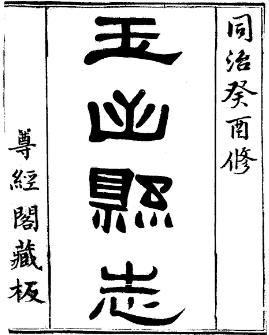 同治癸酉修
玉山縣志
尊經閣藏板